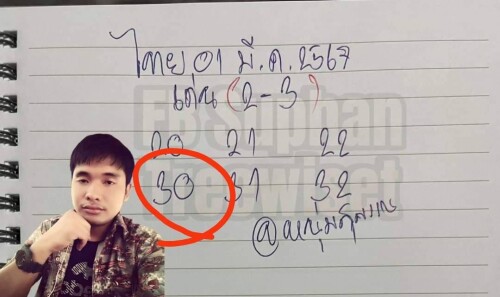 ไทย 01 มี.ค. 2567
เด่น (2-3)
20 21 22
30 31 32
FB Suphan